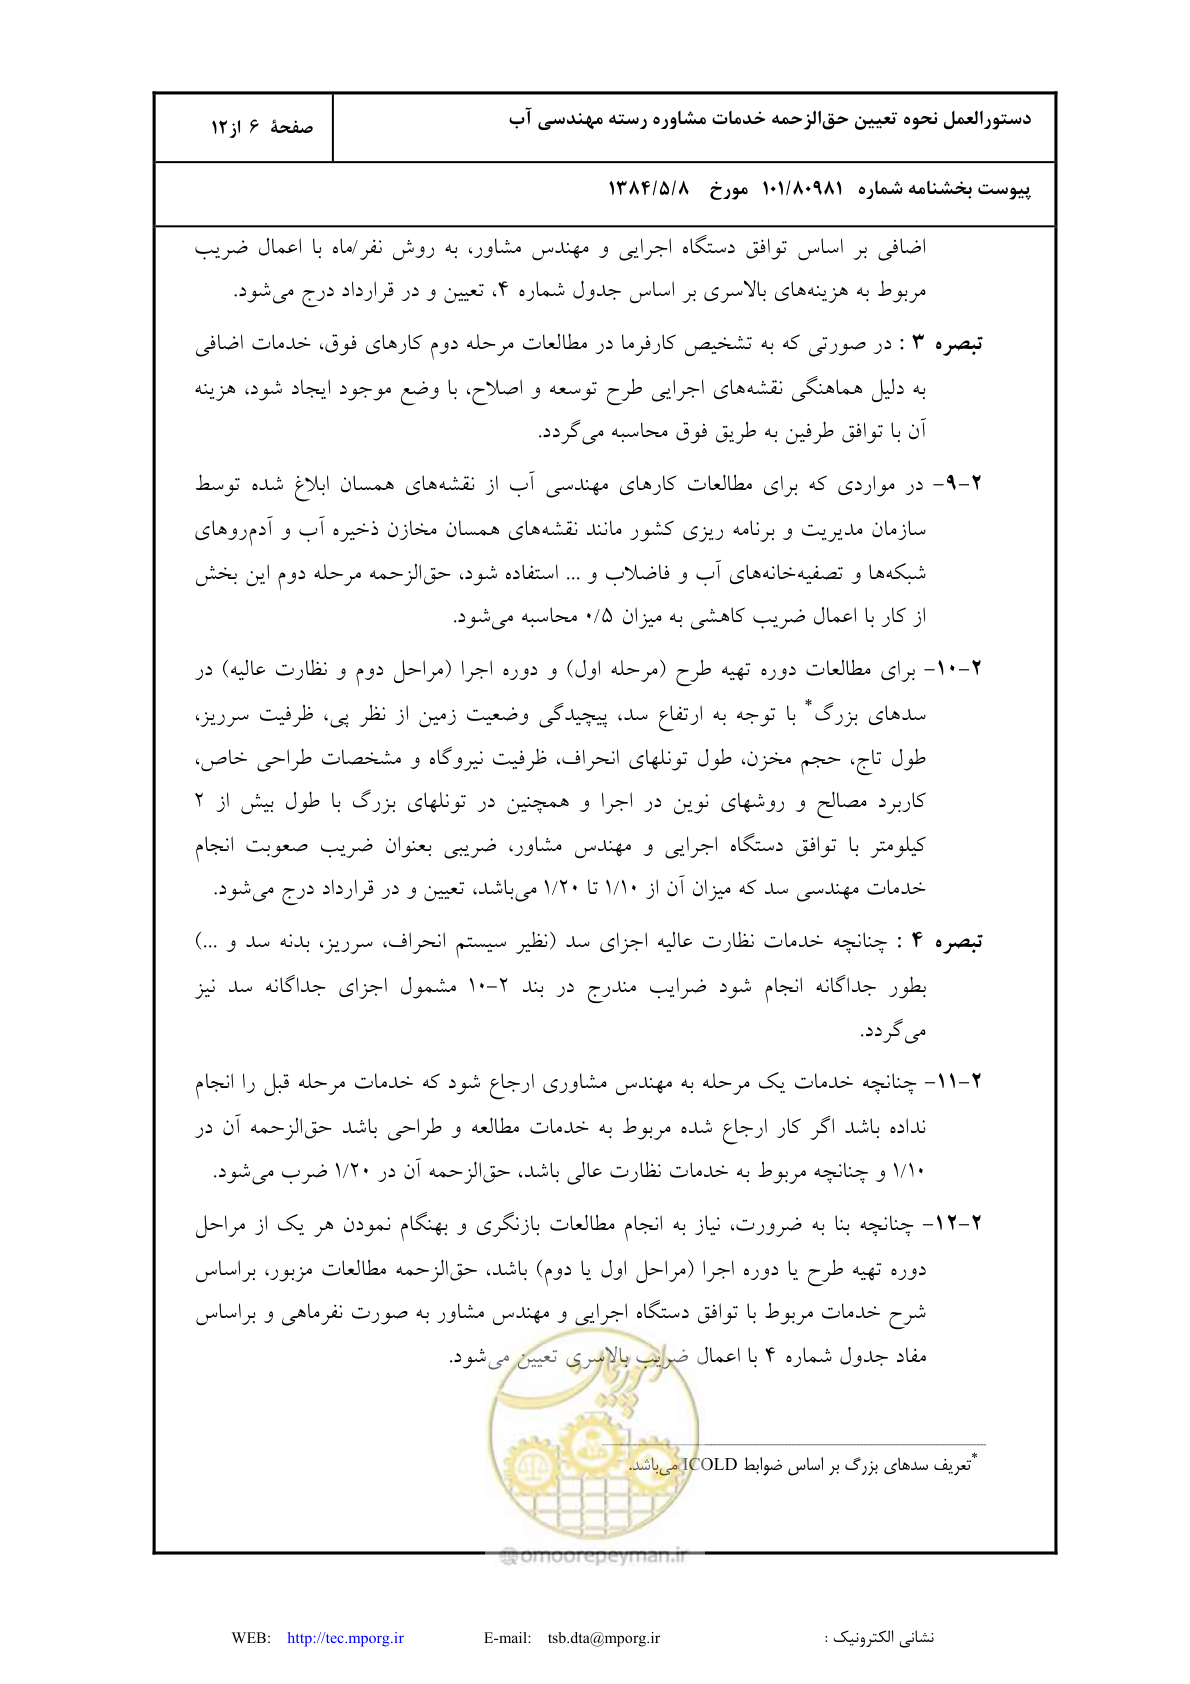 دستورالعمل نحوه تعیین حق‌الزحمه خدمات مشاوره رسته مهندسی آب
صفحهٔ ۶ از۱۲
پیوست بخشنامه شماره ۱۰۱/۸۰۹۸۱ مورخ ۱۳۸۴/۵/۸
اضافی بر اساس توافق دستگاه اجرایی و مهندس مشاور، به روش نفر/ماه با اعمال ضریب
مربوط به هزینه‌های بالاسری بر اساس جدول شماره ۴، تعیین و در قرارداد درج می‌شود.
تبصره ۳ : در صورتی که به تشخیص کارفرما در مطالعات مرحله دوم کارهای فوق، خدمات اضافی
به دلیل هماهنگی نقشه‌های اجرایی طرح توسعه و اصلاح، با وضع موجود ایجاد شود، هزینه
آن با توافق طرفین به طریق فوق محاسبه می‌گردد.
۲-۹- در مواردی که برای مطالعات کارهای مهندسی آب از نقشه‌های همسان ابلاغ شده توسط
سازمان مدیریت و برنامه ریزی کشور مانند نقشه‌های همسان مخازن ذخیره آب و آدم‌روهای
شبکه‌ها و تصفیه‌خانه‌های آب و فاضلاب و ... استفاده شود، حق‌الزحمه مرحله دوم این بخش
از کار با اعمال ضریب کاهشی به میزان ۰/۵ محاسبه می‌شود.
۲-۱۰- برای مطالعات دوره تهیه طرح (مرحله اول) و دوره اجرا (مراحل دوم و نظارت عالیه) در
سدهای بزرگ* با توجه به ارتفاع سد، پیچیدگی وضعیت زمین از نظر پی، ظرفیت سرریز،
طول تاج، حجم مخزن، طول تونلهای انحراف، ظرفیت نیروگاه و مشخصات طراحی خاص،
کاربرد مصالح و روشهای نوین در اجرا و همچنین در تونلهای بزرگ با طول بیش از ۲
کیلومتر با توافق دستگاه اجرایی و مهندس مشاور، ضریبی بعنوان ضریب صعوبت انجام
خدمات مهندسی سد که میزان آن از ۱/۱۰ تا ۱/۲۰ می‌باشد، تعیین و در قرارداد درج می‌شود.
تبصره ۴ : چنانچه خدمات نظارت عالیه اجزای سد (نظیر سیستم انحراف، سرریز، بدنه سد و ...)
بطور جداگانه انجام شود ضرایب مندرج در بند ۲-۱۰ مشمول اجزای جداگانه سد نیز
می‌گردد.
۲-۱۱- چنانچه خدمات یک مرحله به مهندس مشاوری ارجاع شود که خدمات مرحله قبل را انجام
نداده باشد اگر کار ارجاع شده مربوط به خدمات مطالعه و طراحی باشد حق‌الزحمه آن در
۱/۱۰ و چنانچه مربوط به خدمات نظارت عالی باشد، حق‌الزحمه آن در ۱/۲۰ ضرب می‌شود.
۲-۱۲- چنانچه بنا به ضرورت، نیاز به انجام مطالعات بازنگری و بهنگام نمودن هر یک از مراحل
دوره تهیه طرح یا دوره اجرا (مراحل اول یا دوم) باشد، حق‌الزحمه مطالعات مزبور، براساس
شرح خدمات مربوط با توافق دستگاه اجرایی و مهندس مشاور به صورت نفرماهی و براساس
مفاد جدول شماره ۴ با اعمال ضریب بالاسری تعیین می‌شود.
امور پیمان
*تعریف سدهای بزرگ بر اساس ضوابط ICOLD می‌باشد.
@omoorepeyman.ir
نشانی الکترونیک : E-mail: tsb.dta@mporg.ir WEB: http://tec.mporg.ir